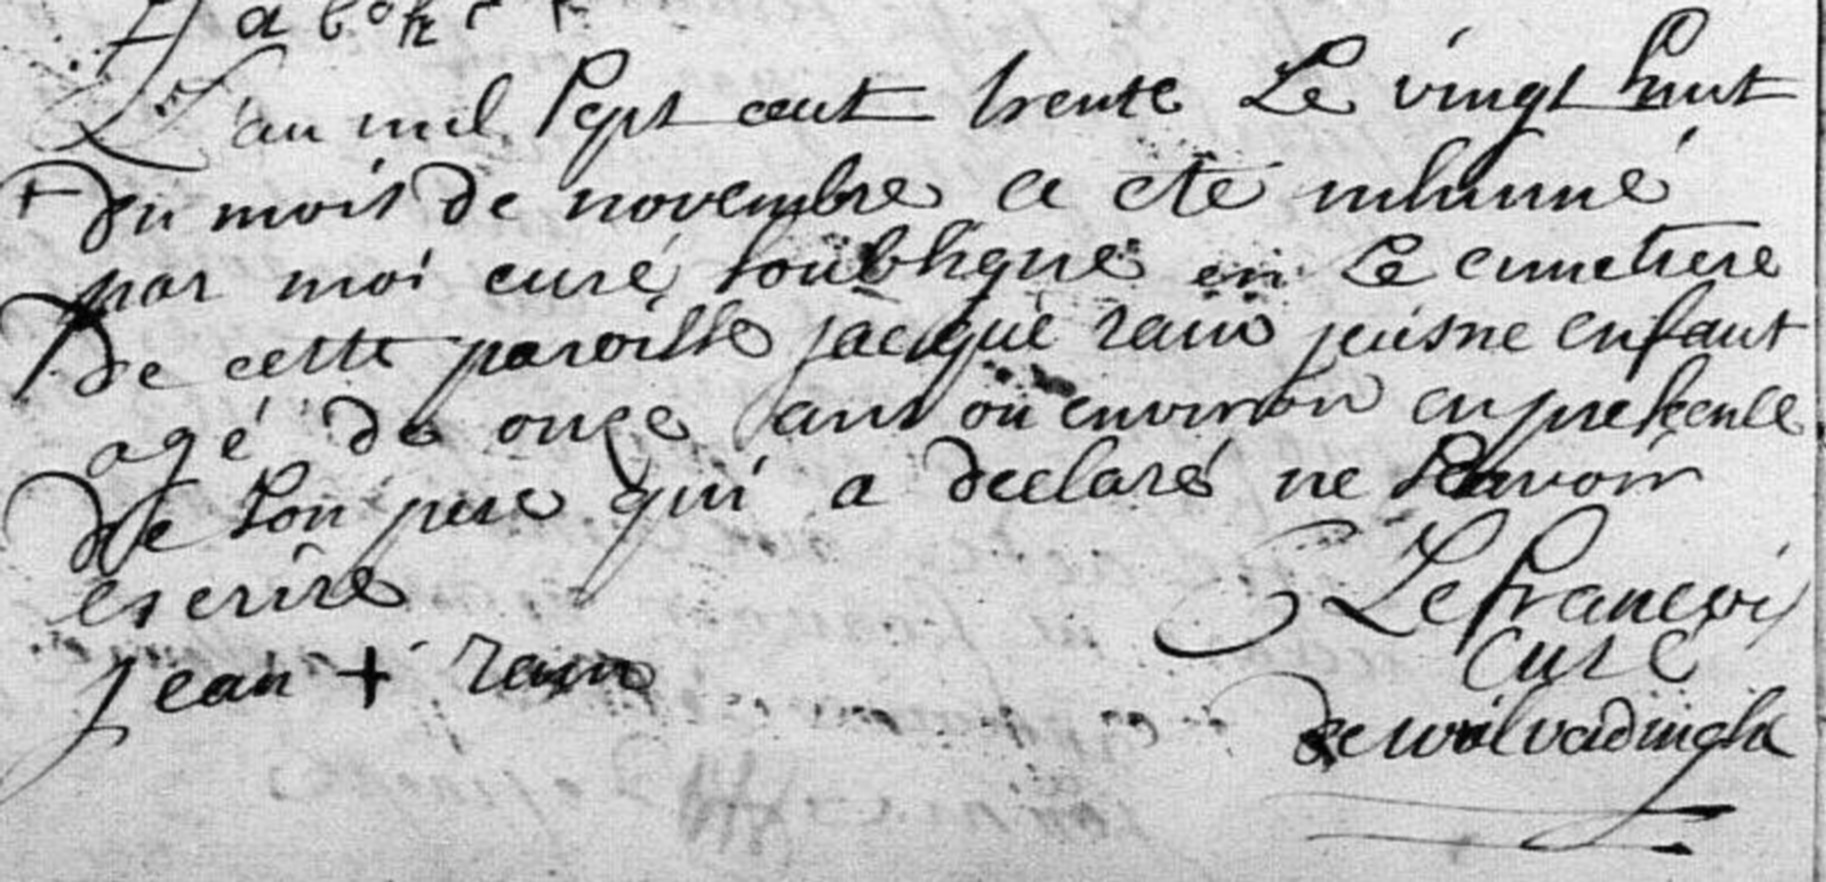 L'an mil sept cent trente Le vingt huit
du mois de novembre a eté inhumé
par moi curé soubsigné en Le cimetiere
De cette paroisse jacque rain jeusne enfant
agé de onze ans ou environ en presence
de son pere qui a declaré ne scavoir
escrire
jean + rain
Lefrancois
curé
de wulverdinghe